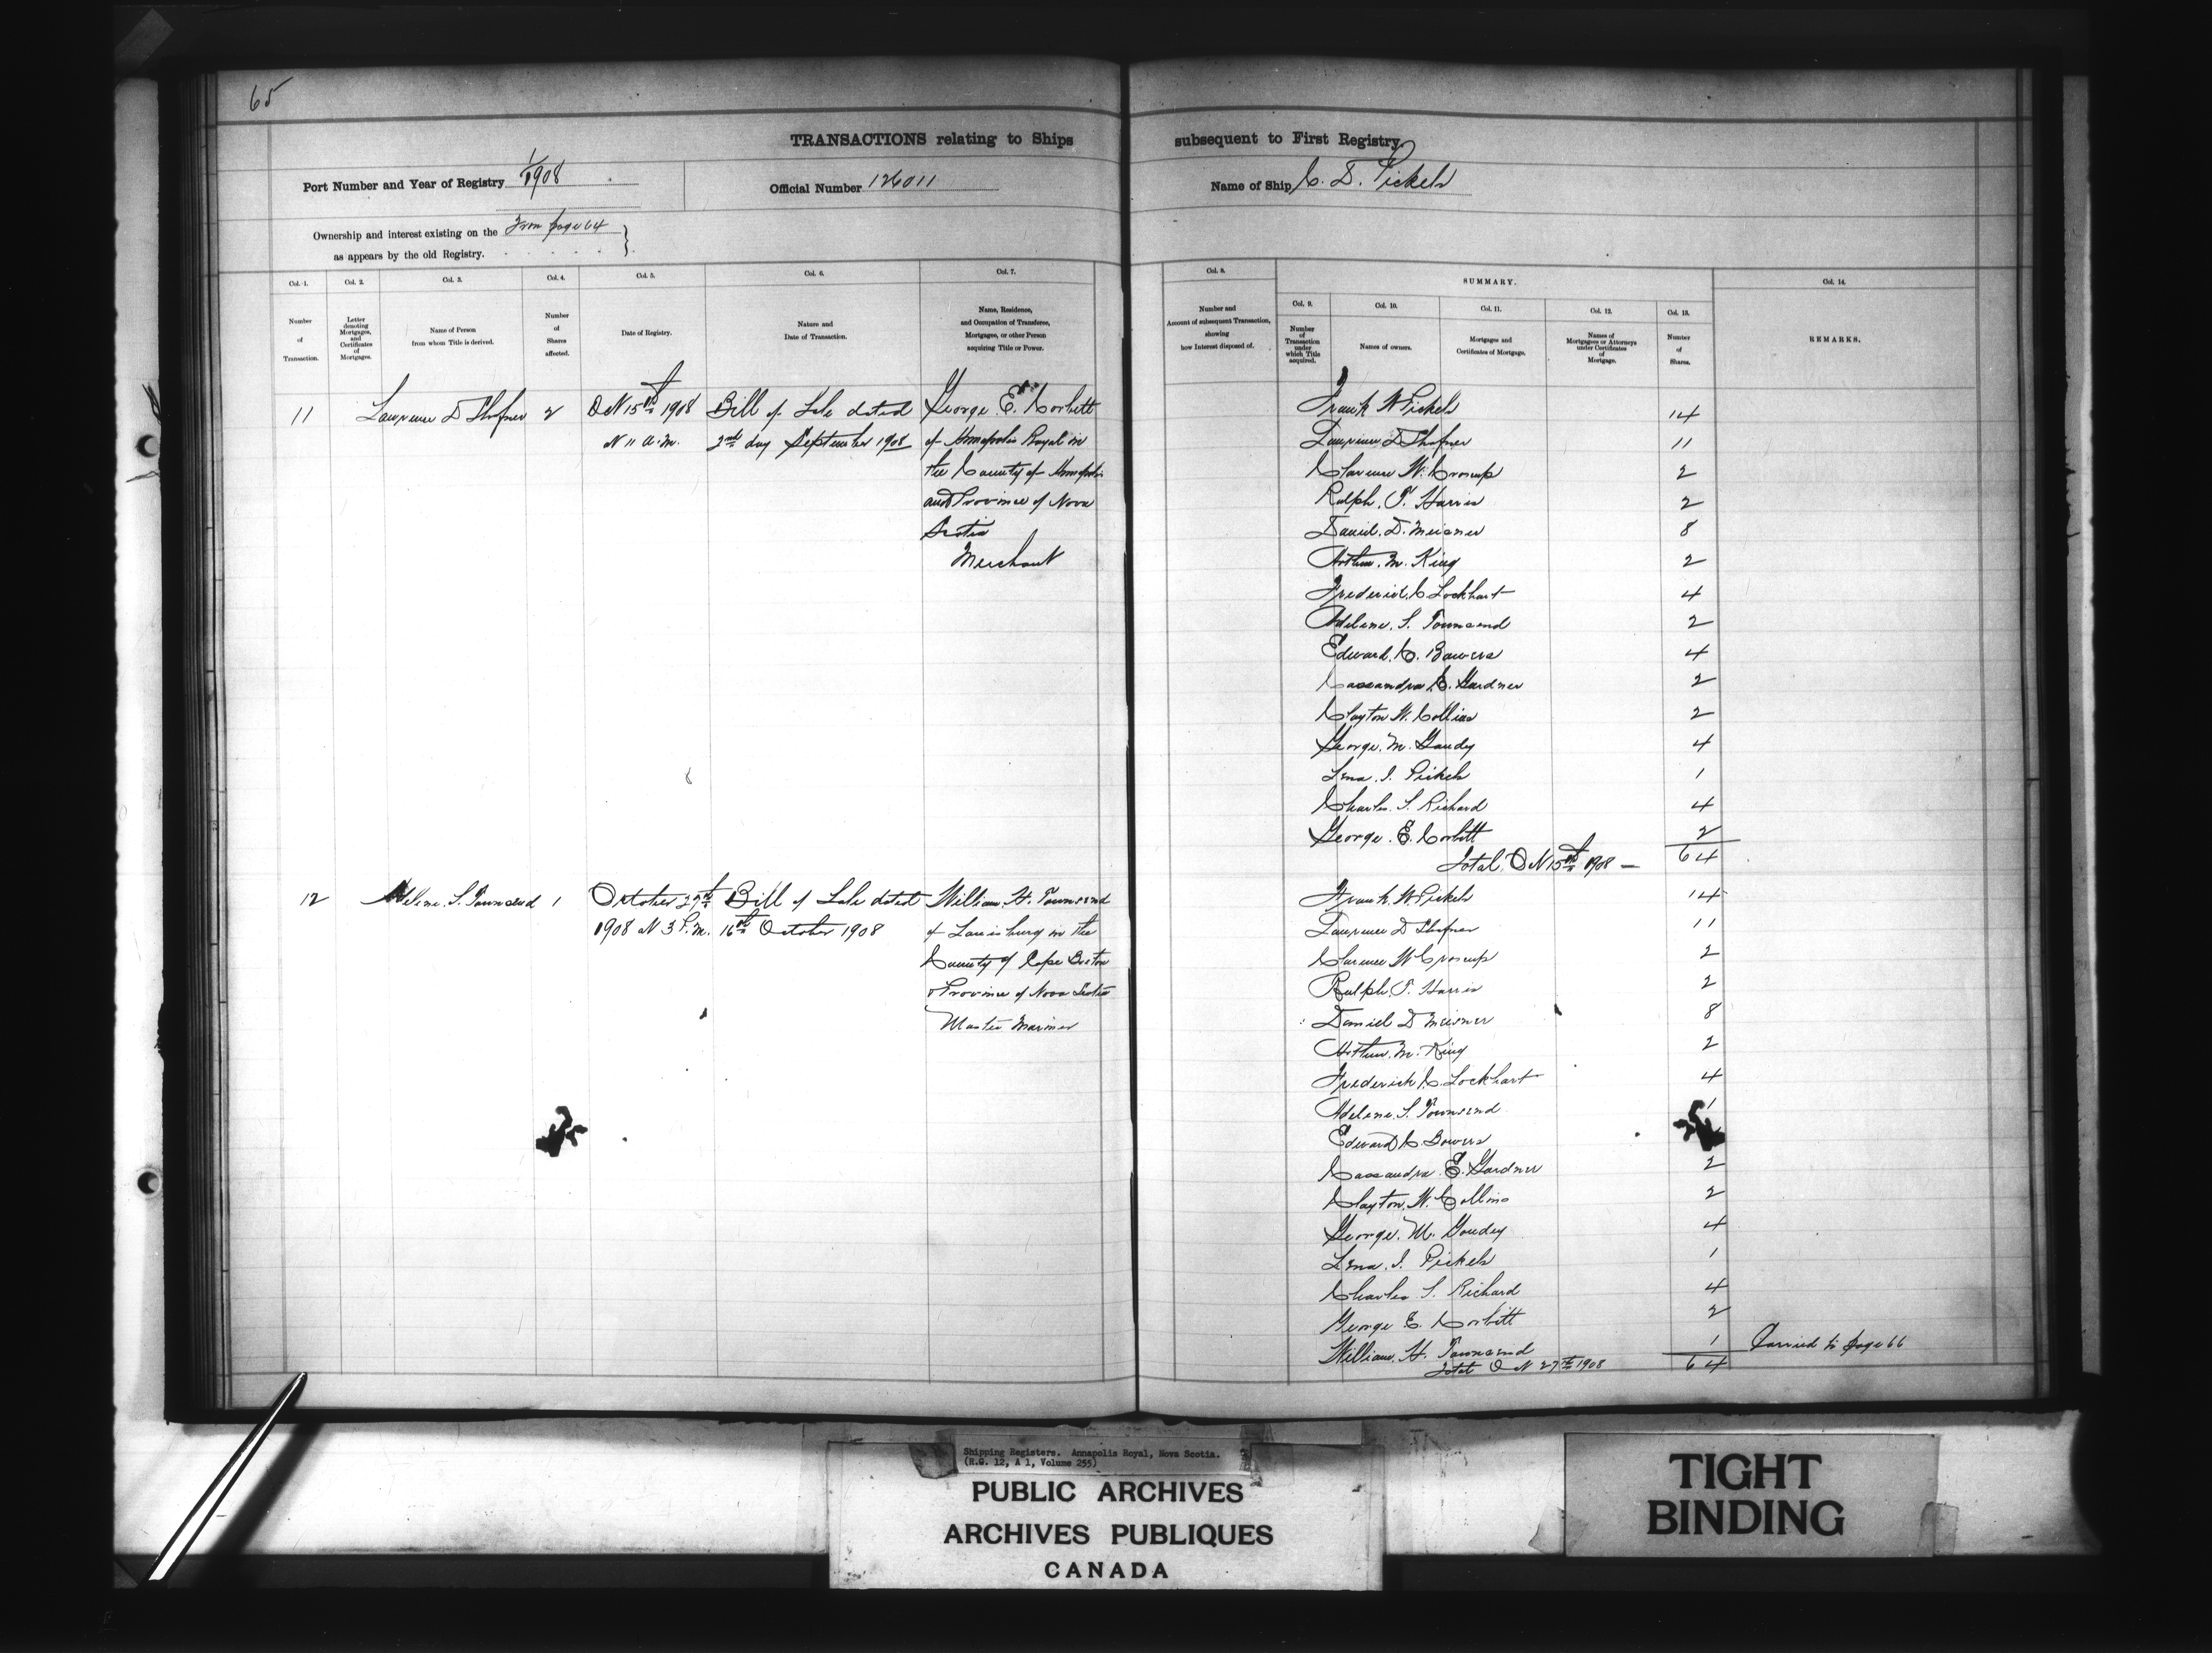 65
TRANSACTIONS relating to Ships subsequent to First Registry
Port Number and Year of Registry 1/1908
Official Number 126011
Name of Ship C. D. Pickels
Ownership and interest existing on the From page 64
as appears by the old Registry.
Col. 1. Col. 2. Col. 3. Col. 4. Col. 5. Col. 6. Col. 7. Col. 8. SUMMARY. Col. 14.
Col. 9. Col. 10. Col. 11. Col. 12. Col. 13.
Number of Transaction.
Letter denoting Mortgages, and Certificates of Mortgages.
Name of Person from whom Title is derived.
Number of Shares affected.
Date of Registry.
Nature and Date of Transaction.
Name, Residence, and Occupation of Transferee, Mortgagee, or other Person acquiring Title or Power.
Number and Amount of subsequent Transaction, showing how Interest disposed of.
Number of Transaction under which Title acquired.
Names of owners.
Mortgages and Certificates of Mortgage.
Names of Mortgagees or Attorneys under Certificates of Mortgage.
Number of Shares.
REMARKS.
11 Lawrence D Shafner 2 Oct 15th 1908 Bill of Sale dated George E. Corbitt
at 11 a.m. 2nd day September 1908 of Annapolis Royal in
the County of Annapolis
and Province of Nova
Scotia
Merchant
Frank W Pickels 14
Lawrence D Shafner 11
Clarence W. Croscup 2
Ralph. T. Harris 2
Daniel. D. Meisner 8
Arthur. M. King 2
Frederick C Lockhart 4
Adelene. S. Townsend 2
Edward. C. Bowers 4
Cassandra E. Gardner 2
Clayton W. Collins 2
George. M. Goudey 4
Lena. I. Pickels 1
Charles. S. Richard 4
George. E. Corbitt 2
Total Oct 15th 1908 — 64
12 Adelene. S. Townsend 1 October 27th Bill of Sale dated William. H. Townsend
1908 at 3 P.M. 16th October 1908 of Louisburg in the
County of Cape Breton
& Province of Nova Scotia
Master Mariner
Frank. W. Pickels 14
Lawrence D Shafner 11
Clarence W Croscup 2
Ralph. T. Harris 2
Daniel D Meisner 8
Arthur. M. King 2
Frederick C. Lockhart 4
Adelene. S. Townsend 1
Edward C. Bowers
Cassandra E. Gardner 2
Clayton. W. Collins 2
George. M. Goudey 4
Lena. I. Pickels 1
Charles S. Richard 4
George E. Corbitt 2
William. H. Townsend 1 Carried to page 66
Total Oct 27th 1908 64
Shipping Registers. Annapolis Royal, Nova Scotia.
(R.G. 12, A 1, Volume 255)
PUBLIC ARCHIVES
ARCHIVES PUBLIQUES
CANADA
TIGHT
BINDING